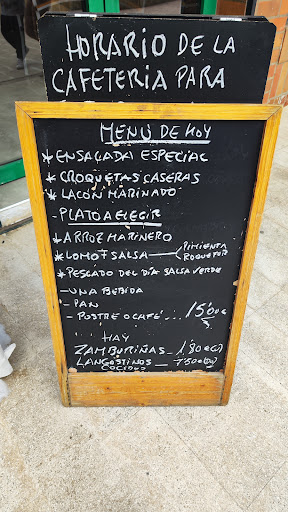 HORARIO DE LA
CAFETERIA PARA
MENÚ DE HOY
* ENSALADA ESPECIAL
* CROQUETAS CASERAS
* LACÓN MARINADO
- PLATO A ELEGIR
* ARROZ MARINERO
* LOMO + SALSA — PIMIENTA
ROQUEFOR
* PESCADO DEL DÍA SALSA VERDE
- UNA BEBIDA
- PAN
- POSTRE O CAFÉ ... 15,00€
HAY
ZAMBURIÑAS - 1,80€
LANGOSTINOS — 7,50€
COCIDOS